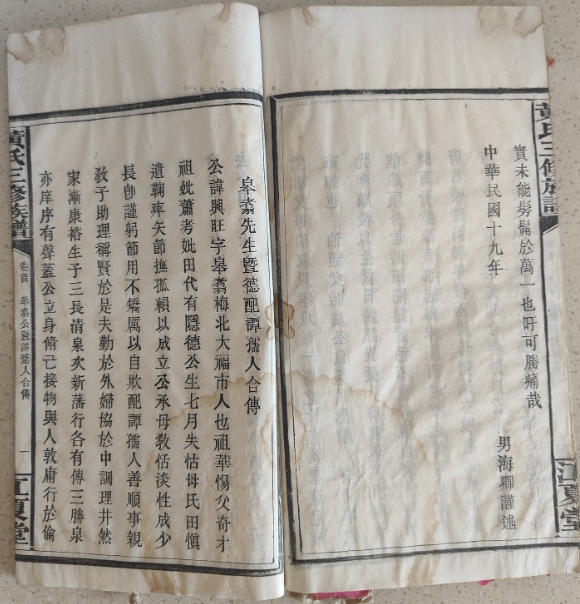 黃氏三修族譜
江夏堂
實未能髣髴於萬一也吁可勝痛哉
中華民國十九年
男海卿謹述
皋翥先生暨德配譚孺人合傳
公諱興旺字皋翥梅北大福市人也祖華惕父奇才
祖妣蕭考妣田代有隱德公生七月失怙母氏田慎
遺鞠瘁矢節撫孤賴以成立公承母敎恬淡性成少
長卽謹躬節用不矯厲以自欺配譚孺人善順事親
敎子助理稱賢於是夫勤於外婦協於中調理井然
家漸康裕生子三長清泉次新藩行各有傳三勝泉
亦庠序有聲蓋公立身脩己接物與人敦庸行於倫
黃氏三修族譜
卷首
皋翥公暨譚孺人合傳
一
江夏堂